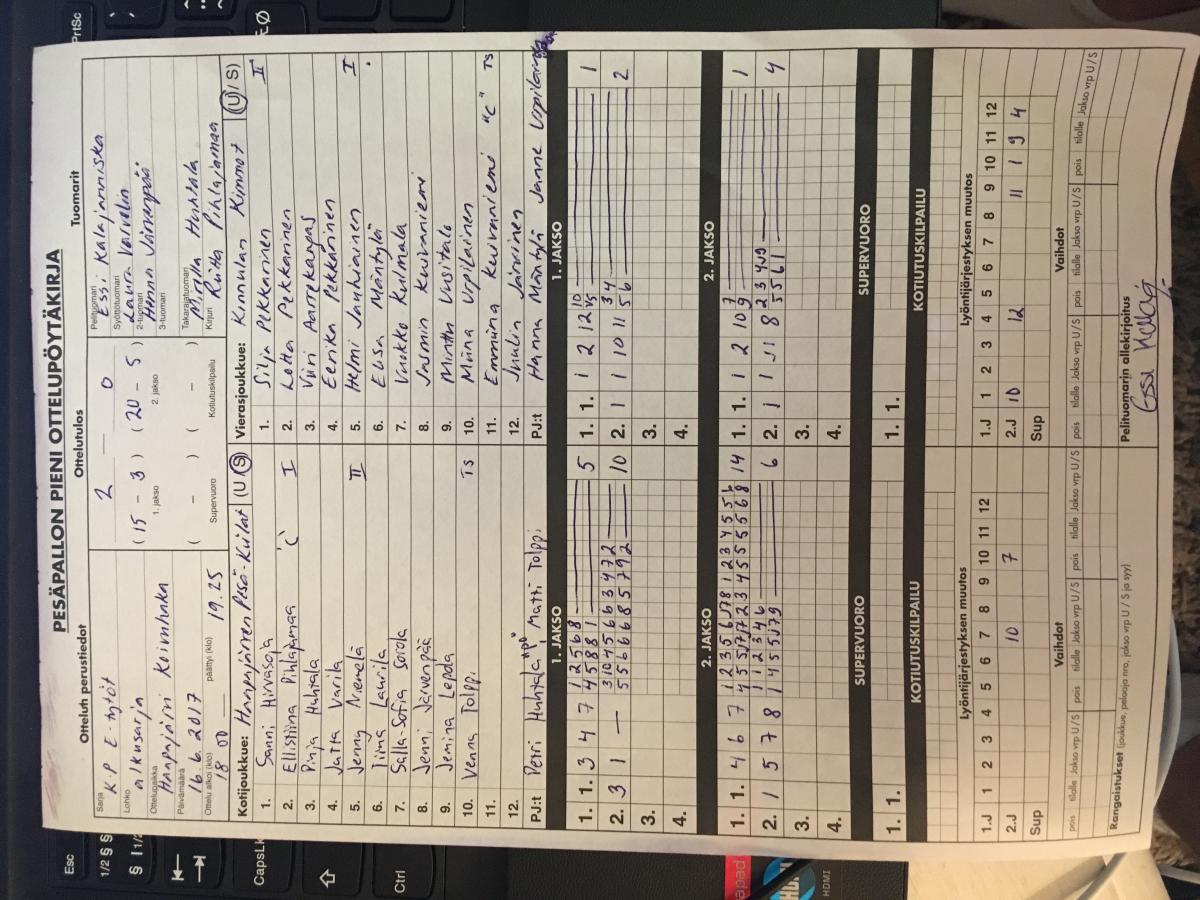 PESÄPALLON PIENI OTTELUPÖYTÄKIRJA
Ottelun perustiedot
Sarja
K.P E-tytöt
Lohko
alkusarja
Ottelupaikka
Haapajärvi Koivuhaka
Päivämäärä
16.6.2017
Ottelu alkoi (klo)
18 00
päättyi (klo)
19.25
Ottelutulos
2 — 0
( 15 - 3 ) ( 20 - 5 )
1. jakso 2. jakso
( - ) ( - )
Supervuoro Kotiutuskilpailu
Tuomarit
Pelituomari
Essi Kalajanniska
Syöttötuomari
Laura
2-tuomari
Henna Järvenpää
3-tuomari
Takarajatuomari
Milla Huhtala
Kirjuri
Riitta Pihlajamaa
Kotijoukkue: Haapajärven Pesä-Kiilat (U / S)
1. Sanni Hirvasoja
2. Ellistiina Pihlajamaa "C" I
3. Pinja Huhtala
4. Jutta Varila
5. Jenny Niemelä II
6. Iina Laurila
7. Salla-Sofia Sorola
8. Jenni Järvenpää
9. Jemina Leppä
10. Venna Tolppi TS
11.
12.
PJ:t Petri Huhtala "P" Matti Tolppi
Vierasjoukkue: Kannulan Kimmot (U / S)
1. Silja Pekkarinen II
2. Lotta Pekkarinen
3. Viiri Aarrekangas
4. Eerika Pekkarinen
5. Helmi Jauhiainen I
6. Elisa Mäntylä
7. Vuokko Kulmala
8. Jasmin Keuvanniemi
9. Minttu Uusitalo
10. Miina Urpilainen
11. Emmiina Keuvanniemi "C" TS
12. Juulia Järvinen
PJ:t Hanna Mäntylä Janne Urpilainen
1. JAKSO
1. 1. 3 4 7 1 2 5 6 8 5
4 5 8 8 1
2. 3 1 — 3 10 4 5 6 6 3 4 7 2 10
5 5 6 6 6 8 5 7 9 2
3.
4.
1. JAKSO
1. 1. 1 2 12 10 1
2. 1 1 10 11 3 4 2
5 6
3.
4.
2. JAKSO
1. 1. 4 6 7 14
2. 1 5 7 8 1 1 2 3 4 6 6
3.
4.
2. JAKSO
1. 1. 1 2 10 7 1
9
2. 1 1 11 8 4
3.
4.
SUPERVUORO
1. 1.
SUPERVUORO
1. 1.
KOTIUTUSKILPAILU
KOTIUTUSKILPAILU
Lyöntijärjestyksen muutos
1.J 1 2 3 4 5 6 7 8 9 10 11 12
2.J 10 7
Sup
Lyöntijärjestyksen muutos
1.J 1 2 3 4 5 6 7 8 9 10 11 12
2.J 10 12 11 1 9 4
Sup
Vaihdot
pois tilalle Jakso vrp U/S pois tilalle Jakso vrp U/S pois tilalle Jakso vrp U/S
Vaihdot
pois tilalle Jakso vrp U/S pois tilalle Jakso vrp U/S pois tilalle Jakso vrp U/S
Rangaistukset (joukkue, pelaaja nro, jakso vrp U / S ja syy)
Pelituomarin allekirjoitus
Essi
Esc
1/2 §
CapsLk
Ctrl
PrtSc
HDMI